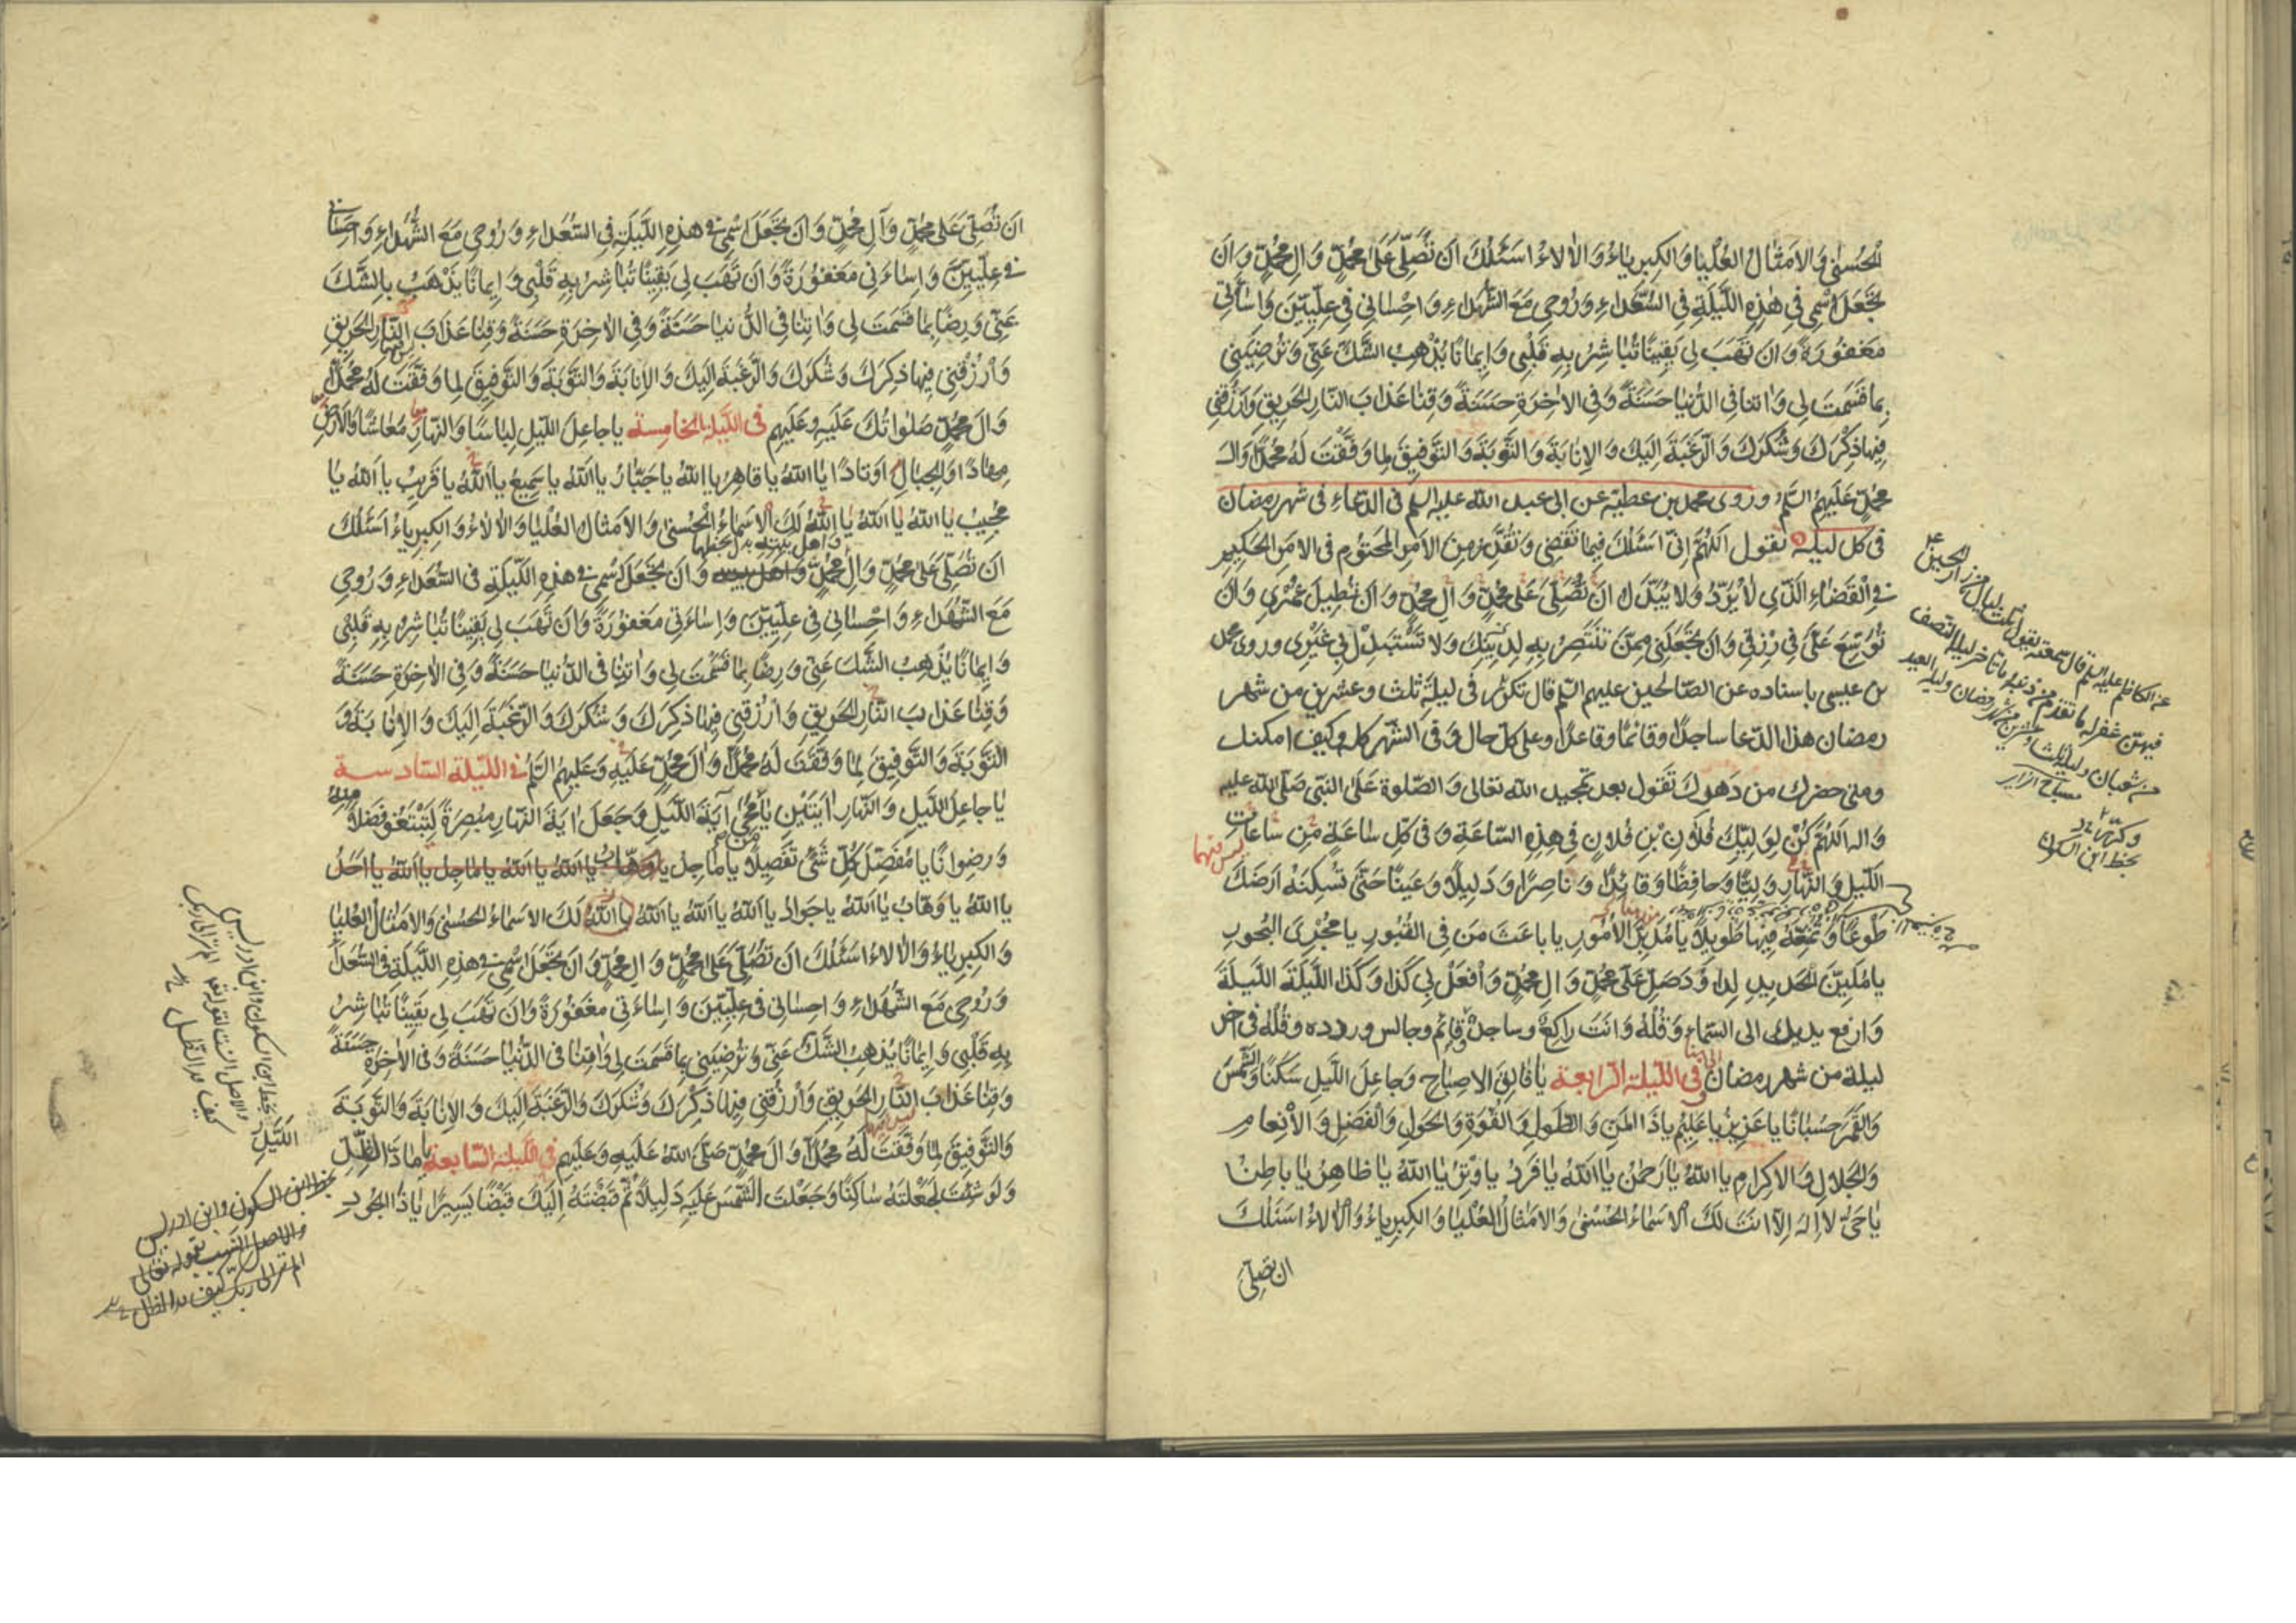 الْحُسْنٰى وَالْاَمْثٰالُ الْعُلْيٰا وَالْكِبْرِيٰاءُ وَالْاٰلاءُ اَسْئَلُكَ اَنْ تُصَلِّىَ عَلىٰ مُحَمَّدٍ وَاٰلِ مُحَمَّدٍ وَاَنْ
تَجْعَلَ اسْمِى فِى هٰذِهِ اللَّيْلَةِ فِى السُّعَدٰاءِ وَرُوحِى مَعَ الشُّهَدٰاءِ وَاِحْسٰانِى فِى عِلِّيِّينَ وَاِسٰآئَتِى
مَغْفُورَةً وَاَنْ تَهَبَ لِى يَقِينًا تُبٰاشِرُ بِهِ قَلْبِى وَاِيمٰانًا يُذْهِبُ الشَّكَّ عَنِّى وَتُرْضِيَنِى
بِمٰا قَسَمْتَ لِى وَاٰتِنٰا فِى الدُّنْيٰا حَسَنَةً وَفِى الْاٰخِرَةِ حَسَنَةً وَقِنٰا عَذٰابَ النّٰارِ الْحَرِيقِ وَارْزُقْنِى
فِيهٰا ذِكْرَكَ وَشُكْرَكَ وَالرَّغْبَةَ اِلَيْكَ وَالْاِنٰابَةَ وَالتَّوْبَةَ وَالتَّوْفِيقَ لِمٰا وَفَّقْتَ لَهُ مُحَمَّدًا وَاٰلَ
مُحَمَّدٍ عَلَيْهِمُ السَّلَمُ وروى محمد بن عطيه عن ابى عبد الله عليه السلم فى الدعاء فى شهر رمضان
فى كل ليلة تقول اَللّٰهُمَّ اِنِّى اَسْئَلُكَ فِيمٰا تَقْضِى وَتُقَدِّرُ مِنَ الْاَمْرِ الْمَحْتُومِ فِى الْاَمْرِ الْحَكِيمِ
فِى الْقَضٰاءِ الَّذِى لٰا يُرَدُّ وَلٰا يُبَدَّلُ اَنْ تُصَلِّىَ عَلىٰ مُحَمَّدٍ وَاٰلِ مُحَمَّدٍ وَاَنْ تُطِيلَ عُمْرِى وَاَنْ
تُوَسِّعَ عَلَىَّ فِى رِزْقِى وَاَنْ تَجْعَلَنِى مِمَّنْ تَنْتَصِرُ بِهِ لِدِينِكَ وَلا تَسْتَبْدِلْ بِى غَيْرِى وروى محمد
بن عيسى باسناده عن الصالحين عليهم السلم قال تكرر فى ليلة ثلث وعشرين من شهر
رمضان هذا الدعا ساجدًا وقائمًا وقاعدًا وعلى كل حال وفى الشهر كله وكيف امكنك
ومتى حضرك من دهرك تَقُول بعد تمجيد الله تعالى وَالصّلوة عَلَى النبّى صَلّى الله عليه
وَاله اَللّٰهُمَّ كُنْ لِوَلِيِّكَ فُلٰانِ بْنِ فُلٰانٍ فِى هٰذِهِ السّٰاعَةِ وَفِى كُلِّ سٰاعَةٍ مِنْ سٰاعٰاتِ
اللَّيْلِ وَالنَّهٰارِ وَلِيًّا وَحٰافِظًا وَقٰائِدًا وَنٰاصِرًا وَدَلِيلًا وَعَيْنًا حَتّٰى تُسْكِنَهُ اَرْضَكَ
طَوْعًا وَتُمَتِّعَهُ فِيهٰا طَوِيلًا يٰا مُدَبِّرَ الْاُمُورِ يٰا بٰاعِثَ مَنْ فِى الْقُبُورِ يٰا مُجْرِىَ الْبُحُورِ
يٰا مُلَيِّنَ الْحَدِيدِ لِدٰاوُدَ صَلِّ عَلىٰ مُحَمَّدٍ وَاٰلِ مُحَمَّدٍ وَافْعَلْ بِى كَذٰا وَكَذٰا اللَّيْلَةَ اللَّيْلَةَ
وَارفع يديك الى السّماءِ وَقُلْهُ وَانتَ راكعٌ وساجدٌ وقائم وجالس وردده وقُلْهُ فى اخر
ليلة من شهر رمضان فى الليلة الرابعة يٰا فٰالِقَ الْاِصْبٰاحِ وَجٰاعِلَ اللَّيْلِ سَكَنًا وَالشَّمْسَ
وَالْقَمَرَ حُسْبٰانًا يٰا عَزِيزُ يٰا عَلِيمُ يٰا ذَا الْمَنِّ وَالطَّوْلِ وَالْقُوَّةِ وَالْحَوْلِ وَالْفَضْلِ وَالْاِنْعٰامِ
وَالْجَلٰالِ وَالْاِكْرٰامِ يٰا اَللّٰهُ يٰا رَحْمٰنُ يٰا اَللّٰهُ يٰا فَرْدُ يٰا وِتْرُ يٰا اَللّٰهُ يٰا ظٰاهِرُ يٰا بٰاطِنُ
يٰا حَىُّ لٰا اِلٰهَ اِلّٰا اَنْتَ لَكَ الْاَسْمٰاءُ الْحُسْنىٰ وَالْاَمْثٰالُ الْعُلْيٰا وَالْكِبْرِيٰاءُ وَالْاٰلٰاءُ اَسْئَلُكَ
ان تصلى
عن الكاظم عليه السلم قال سمعته يقول ثلث ليال من زار الحسين ع
فيهن غفر له ما تقدم من ذنبه وما تاخر ليلة النصف
من شعبان وليلة ثلث وعشرين من شهر رمضان وليلة العيد
بخط ابن السكون
اَنْ تُصَلِّىَ عَلىٰ مُحَمَّدٍ وَاٰلِ مُحَمَّدٍ وَاَنْ تَجْعَلَ اسْمِى فِى هٰذِهِ اللَّيْلَةِ فِى السُّعَدٰاءِ وَرُوحِى مَعَ الشُّهَدٰاءِ وَاِحْسٰانِى
فِى عِلِّيِّينَ وَاِسٰاءَتِى مَغْفُورَةً وَاَنْ تَهَبَ لِى يَقِينًا تُبٰاشِرُ بِهِ قَلْبِى وَاِيمٰانًا يَذْهَبُ بِالشَّكِّ
عَنِّى وَرِضًا بِمٰا قَسَمْتَ لِى وَاٰتِنٰا فِى الدُّنْيٰا حَسَنَةً وَفِى الْاٰخِرَةِ حَسَنَةً وَقِنٰا عَذٰابَ النّٰارِ الْحَرِيقِ
وَارْزُقْنِى فِيهٰا ذِكْرَكَ وَشُكْرَكَ وَالرَّغْبَةَ اِلَيْكَ وَالْاِنٰابَةَ وَالتَّوْبَةَ وَالتَّوْفِيقَ لِمٰا وَفَّقْتَ لَهُ مُحَمَّدًا
وَاٰلَ مُحَمَّدٍ صَلَوٰاتُكَ عَلَيْهِ وَعَلَيْهِمْ فى الليلة الخامسة يٰا جٰاعِلَ اللَّيْلِ لِبٰاسًا وَالنَّهٰارِ مَعٰاشًا وَالْاَرْضِ
مِهٰادًا وَالْجِبٰالِ اَوْتٰادًا يٰا اَللّٰهُ يٰا قٰاهِرُ يٰا اَللّٰهُ يٰا جَبّٰارُ يٰا اَللّٰهُ يٰا سَمِيعُ يٰا اَللّٰهُ يٰا قَرِيبُ يٰا اَللّٰهُ يٰا
مُجِيبُ يٰا اَللّٰهُ يٰا اَللّٰهُ يٰا اَللّٰهُ لَكَ الْاَسْمٰاءُ الْحُسْنىٰ وَالْاَمْثٰالُ الْعُلْيٰا وَالْاٰلٰاءُ وَالْكِبْرِيٰاءُ اَسْئَلُكَ
اَنْ تُصَلِّىَ عَلىٰ مُحَمَّدٍ وَاٰلِ مُحَمَّدٍ وَاَنْ تَجْعَلَ اسْمِى فِى هٰذِهِ اللَّيْلَةِ فِى السُّعَدٰاءِ وَرُوحِى
مَعَ الشُّهَدٰاءِ وَاِحْسٰانِى فِى عِلِّيِّينَ وَاِسٰاءَتِى مَغْفُورَةً وَاَنْ تَهَبَ لِى يَقِينًا تُبٰاشِرُ بِهِ قَلْبِى
وَاِيمٰانًا يُذْهِبُ الشَّكَّ عَنِّى وَرِضًا بِمٰا قَسَمْتَ لِى وَاٰتِنٰا فِى الدُّنْيٰا حَسَنَةً وَفِى الْاٰخِرَةِ حَسَنَةً
وَقِنٰا عَذٰابَ النّٰارِ الْحَرِيقِ وَارْزُقْنِى فِيهٰا ذِكْرَكَ وَشُكْرَكَ وَالرَّغْبَةَ اِلَيْكَ وَالْاِنٰابَةَ وَ
التَّوْبَةَ وَالتَّوْفِيقَ لِمٰا وَفَّقْتَ لَهُ مُحَمَّدًا وَاٰلَ مُحَمَّدٍ عَلَيْهِ وَعَلَيْهِمُ السَّلَمُ فى الليلة السادسة
يٰا جٰاعِلَ اللَّيْلِ وَالنَّهٰارِ اٰيَتَيْنِ يٰا مَنْ مَحىٰ اٰيَةَ اللَّيْلِ وَجَعَلَ اٰيَةَ النَّهٰارِ مُبْصِرَةً لِتَبْتَغُوا فَضْلًا مِنْهُ
وَرِضْوٰانًا يٰا مُفَصِّلَ كُلِّ شَىْءٍ تَفْصِيلًا يٰا مٰاجِدُ يٰا وَهّٰابُ يٰا اَللّٰهُ يٰا اَللّٰهُ يٰا مٰاجِدُ يٰا اَللّٰهُ يٰا اَحَدُ
يٰا اَللّٰهُ يٰا وَهّٰابُ يٰا اَللّٰهُ يٰا جَوٰادُ يٰا اَللّٰهُ يٰا اَللّٰهُ يٰا اَللّٰهُ يٰا اَللّٰهُ لَكَ الْاَسْمٰاءُ الْحُسْنىٰ وَالْاَمْثٰالُ الْعُلْيٰا
وَالْكِبْرِيٰاءُ وَالْاٰلٰاءُ اَسْئَلُكَ اَنْ تُصَلِّىَ عَلىٰ مُحَمَّدٍ وَاٰلِ مُحَمَّدٍ وَاَنْ تَجْعَلَ اسْمِى فِى هٰذِهِ اللَّيْلَةِ فِى السُّعَدٰاءِ
وَرُوحِى مَعَ الشُّهَدٰاءِ وَاِحْسٰانِى فِى عِلِّيِّينَ وَاِسٰاءَتِى مَغْفُورَةً وَاَنْ تَهَبَ لِى يَقِينًا تُبٰاشِرُ
بِهِ قَلْبِى وَاِيمٰانًا يُذْهِبُ الشَّكَّ عَنِّى وَتُرْضِيَنِى بِمٰا قَسَمْتَ لِى وَاٰتِنٰا فِى الدُّنْيٰا حَسَنَةً وَفِى الْاٰخِرَةِ حَسَنَةً
وَقِنٰا عَذٰابَ النّٰارِ الْحَرِيقِ وَارْزُقْنِى فِيهٰا ذِكْرَكَ وَشُكْرَكَ وَالرَّغْبَةَ اِلَيْكَ وَالْاِنٰابَةَ وَالتَّوْبَةَ
وَالتَّوْفِيقَ لِمٰا وَفَّقْتَ لَهُ مُحَمَّدًا وَاٰلَ مُحَمَّدٍ صَلَّى اللّٰهُ عَلَيْهِ وَعَلَيْهِمْ فى الليلة السابعة يٰا مٰادَّ الظِّلِّ
وَلَوْ شِئْتَ لَجَعَلْتَهُ سٰاكِنًا وَجَعَلْتَ الشَّمْسَ عَلَيْهِ دَلِيلًا ثُمَّ قَبَضْتَهُ اِلَيْكَ قَبْضًا يَسِيرًا يٰا ذَا الْجُودِ
بخط ابن السكون وابن ادريس
والاصل النصب لقوله تعالى
الم تر الى ربك كيف مد الظل